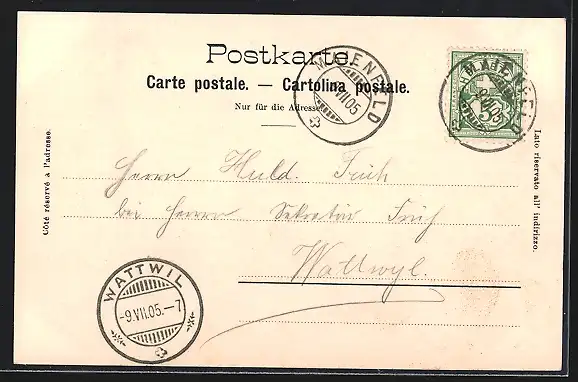 Postkarte.
Carte postale. — Cartolina postale.
Nur für die Adresse.
MAIENFELD
VII.05
MAIENFELD
5
Côté réservé à l'adresse.
Lato riservato all' indirizzo.
Herrn Huld. Früh
bei Herrn Sekretär Früh
Wattwyl.
WATTWIL
-9.VII.05.-7